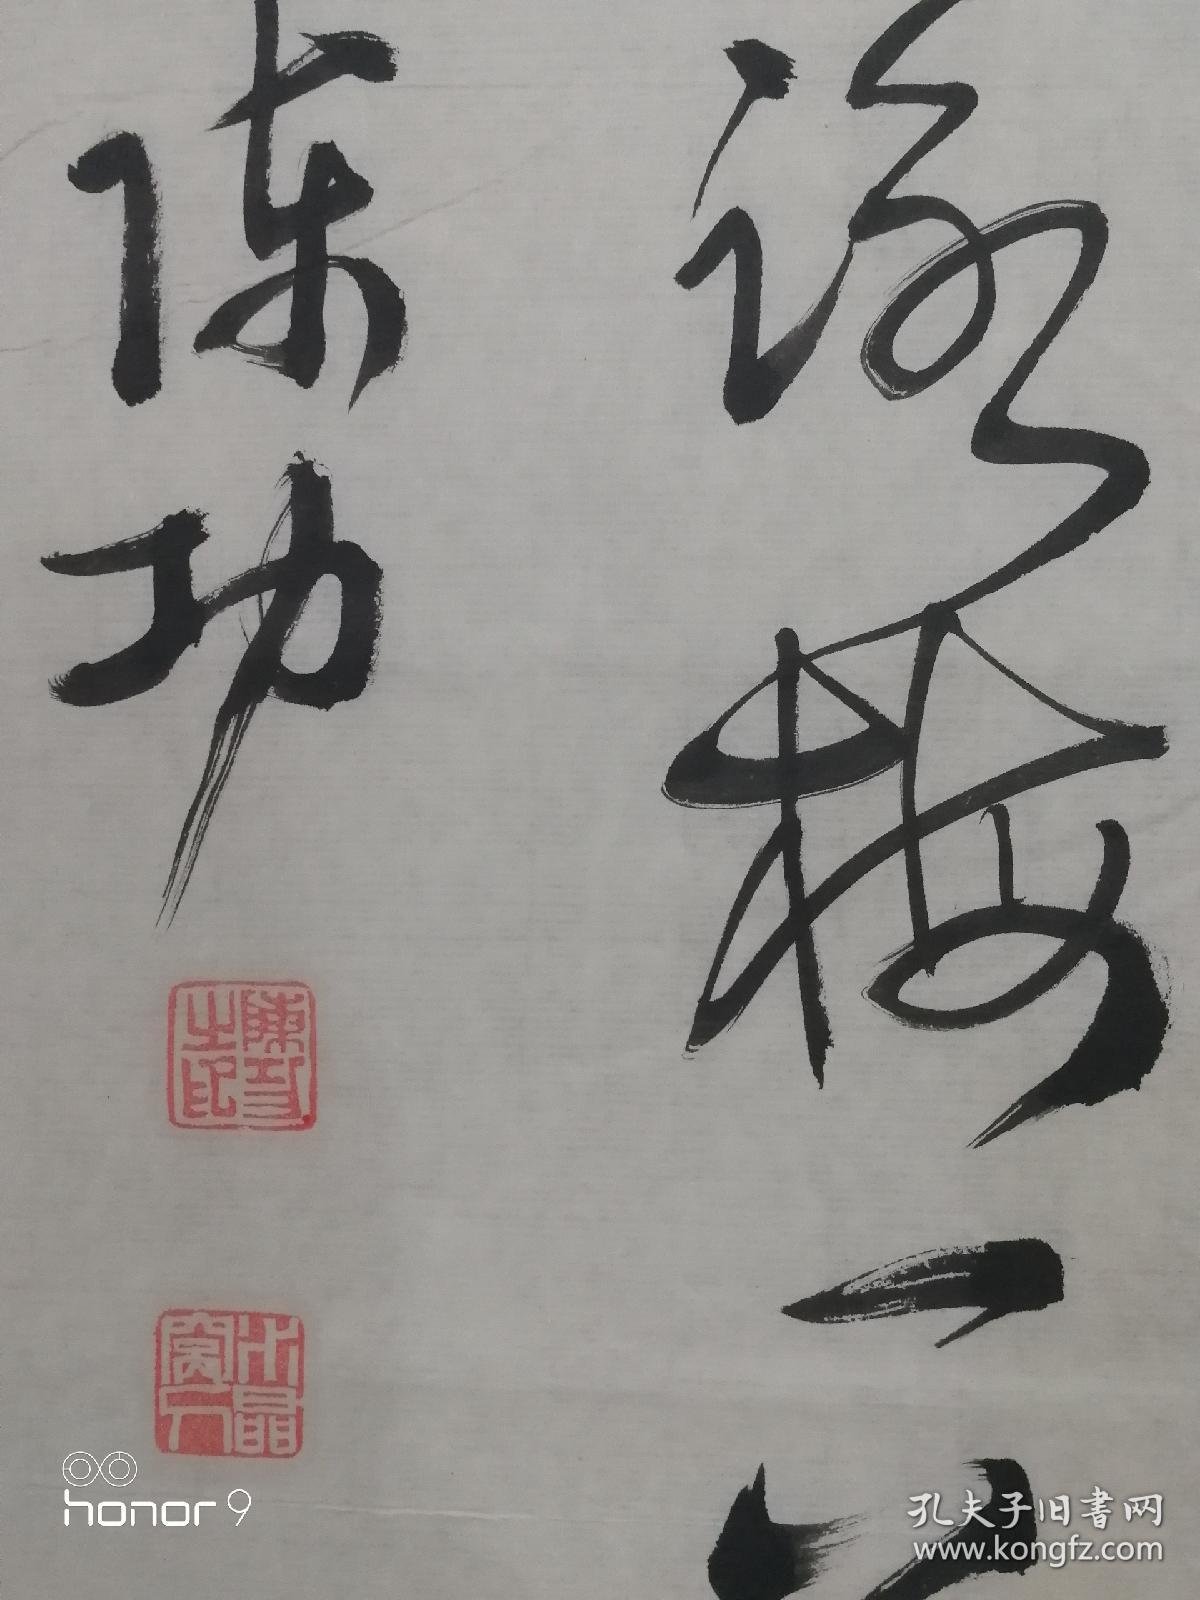 咏梅一首
陈功
陳功之印
水晶窝人
honor 9
孔夫子旧书网
www.kongfz.com